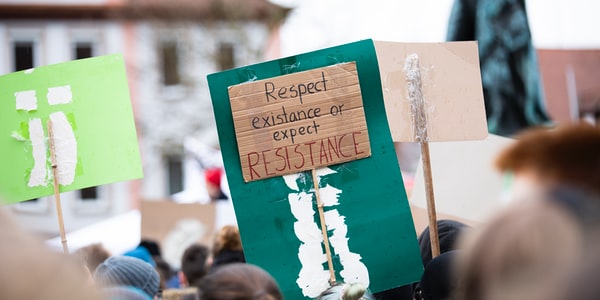 Respect
existance or
expect
RESISTANCE